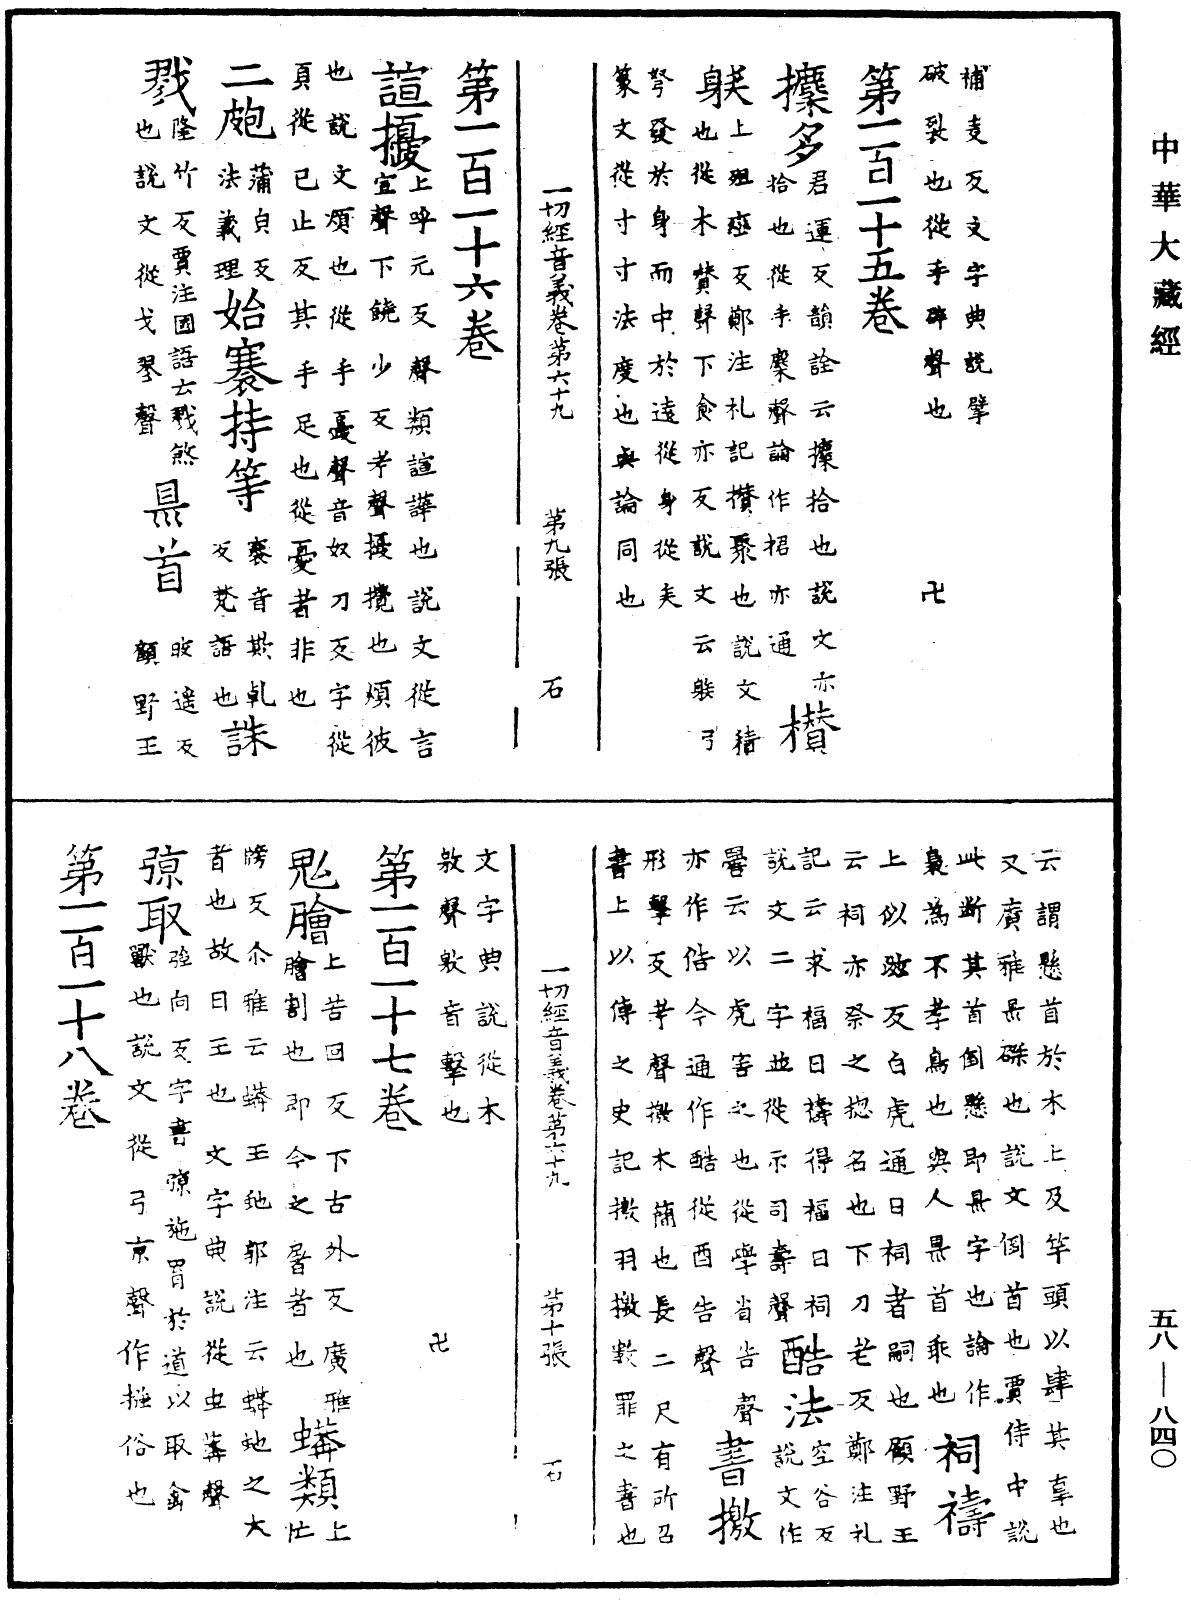 中華大藏經
補麦反文字典說擘
破裂也從手辟聲也　卍
第一百一十五卷
攗多君運反韻詮云攗拾也說文亦
拾也從手麇聲論作捃亦通　欑
身上徂巒反鄭注礼記攢聚也說文積
也從木贊聲下食亦反說文云䠶弓
弩發於身而中於遠從身從矢
篆文從寸寸法度也與論同也
一切經音義卷第六十九　第九張　石
第一百一十六卷
諠擾上呼元反聲類諠譁也說文從言
宣聲下饒少反考聲擾攪也煩彼
也說文煩也從手憂聲音奴刀反字從
頁從已止反其手足也從憂者非也
二皰蒲皃反
法義理始褰持等褰音欺乹
反梵語也誅
戮隆竹反賈注國語云戮煞
也說文從戈翏聲　㬎首皎遥反
顧野王
云謂懸首於木上及竿頭以肆其辜也
又廣雅㬎磔也說文倒首也賈侍中說
此斷其首倒懸即㬎字也論作
梟為不孝鳥也與人㬎首乖也　祠禱
上似玆反白虎通曰祠者嗣也顧野王
云祠亦祭之揔名也下刀老反鄭注礼
記云求福曰禱得福曰祠
說文二字並從示司壽聲　酷法空谷反
說文作
嚳云以虎害之也從學省告聲
亦作俈今通作酷從酉告聲　書撽
形擊反考聲撽木簡也長二尺有所召
書上以傳之史記撽羽撽數罪之書也
一切經音義卷第六十九　第十張　石
文字典說從木
敫聲敫音擊也　卍
第一百一十七卷
魁膾上苦回反下古外反廣雅
膾割也即今之屠者也　蟒類上
忙
牓反尒雅云蟒王虵郭注云蟒虵之大
者也故曰王也文字典說從虫莽聲
弶取強向反字書弶施罥於道以取禽
獸也說文從弓京聲作摾俗也
第一百一十八卷
五八—八四〇